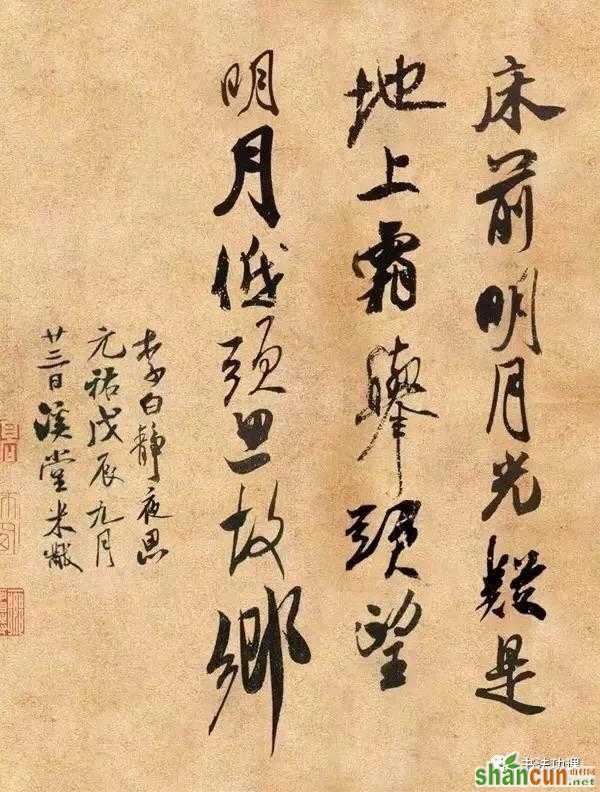 床前明月光疑是
地上霜舉頭望
明月低頭思故鄉
李白靜夜思
元祐戊辰九月
廿三日溪堂米黻
书法功课
shancun
山村网
.net